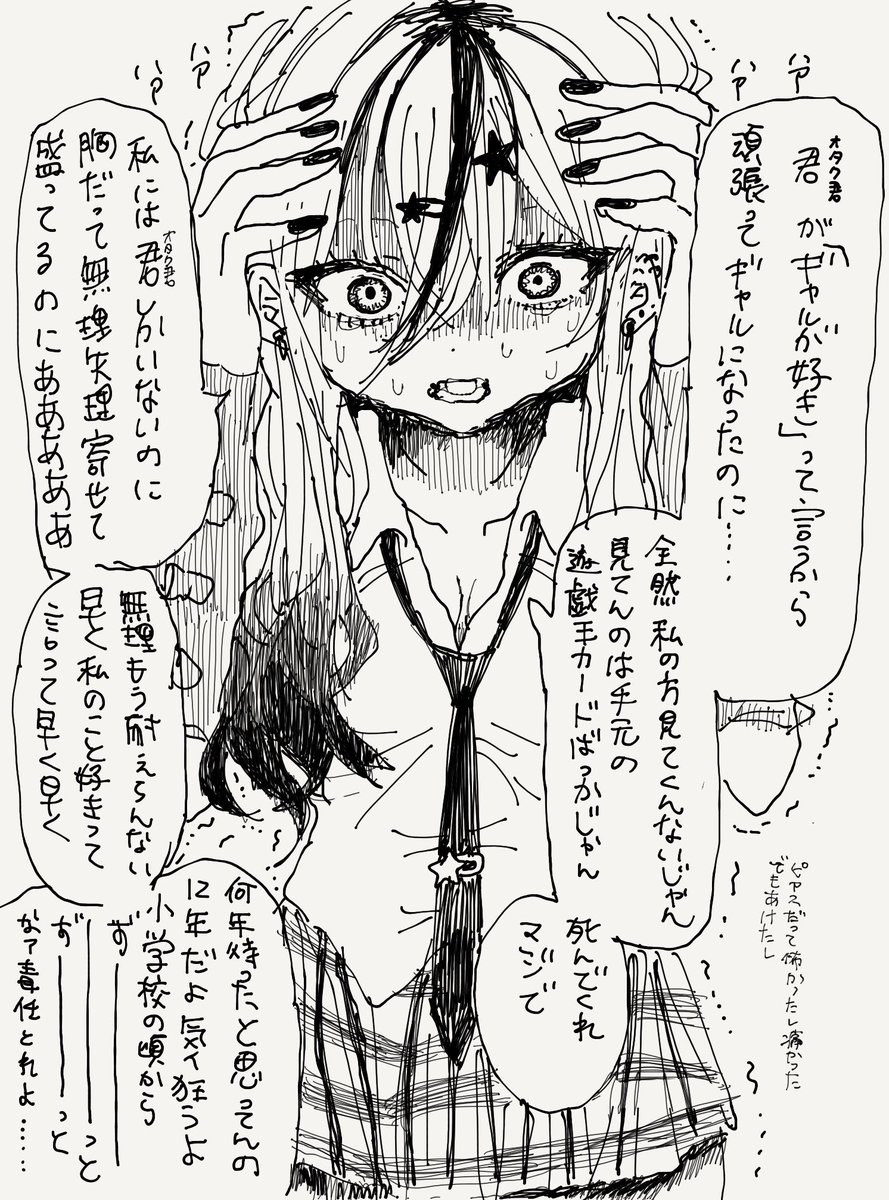 ハァ
ハァ
君が「ギャルが好き」って言うから
オタク君
頑張ってギャルになったのに……
全然私の方見てくんないじゃん
見てんのは手元の
遊戯王カードばっかじゃん
死んでくれ
マジで
ピアスだって怖かったし痛かった
でもあけたし
ハァ
ハァ
私には君しかいないのに
オタク君
胸だって無理矢理寄せて
盛ってるのにああああああ
無理もう耐えらんない
早く私のこと好きって
言って早く早く
何年待ったと思ってんの
12年だよ気ィ狂うよ
小学校の頃から
ず――――っと
ず――――っと
なァ責任とれよ……